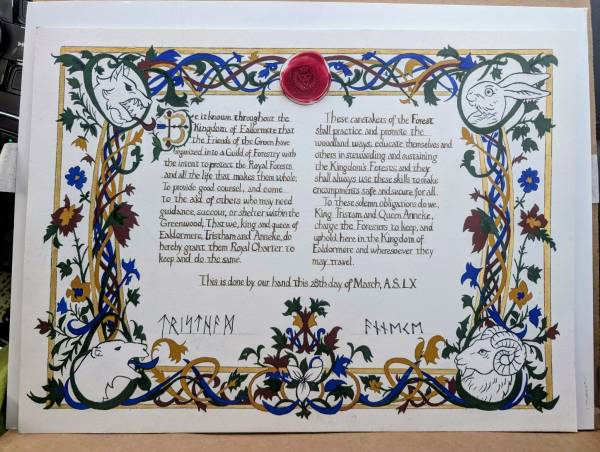 Be it known throughout the
Kingdom of Ealdormere that
the Friends of the Groen have
organized into a Guild of Forestry with
the intent to protect the Royal Forests
and all the life that makes them whole;
To provide good counsel, and come
to the aid of others who may need
guidance, succour, or shelter within the
Greenwood; That we, king and queen of
Ealdormere, Tristham and Anneke, do
hereby grant them Royal Charter to
keep and do the same.
These caretakers of the Forest
shall practice and promote the
woodland ways; educate themselves and
others in stewarding and sustaining
the Kingdom's Forests; and they
shall always use these skills to make
encampments safe and secure for all.
To these solemn obligations do we,
King Tristam and Queen Anneke,
charge the Foresters to keep, and
uphold here in the Kingdom of
Ealdormere and wheresoever they
may travel.
This is done by our hand this 28th day of March, A.S. LX